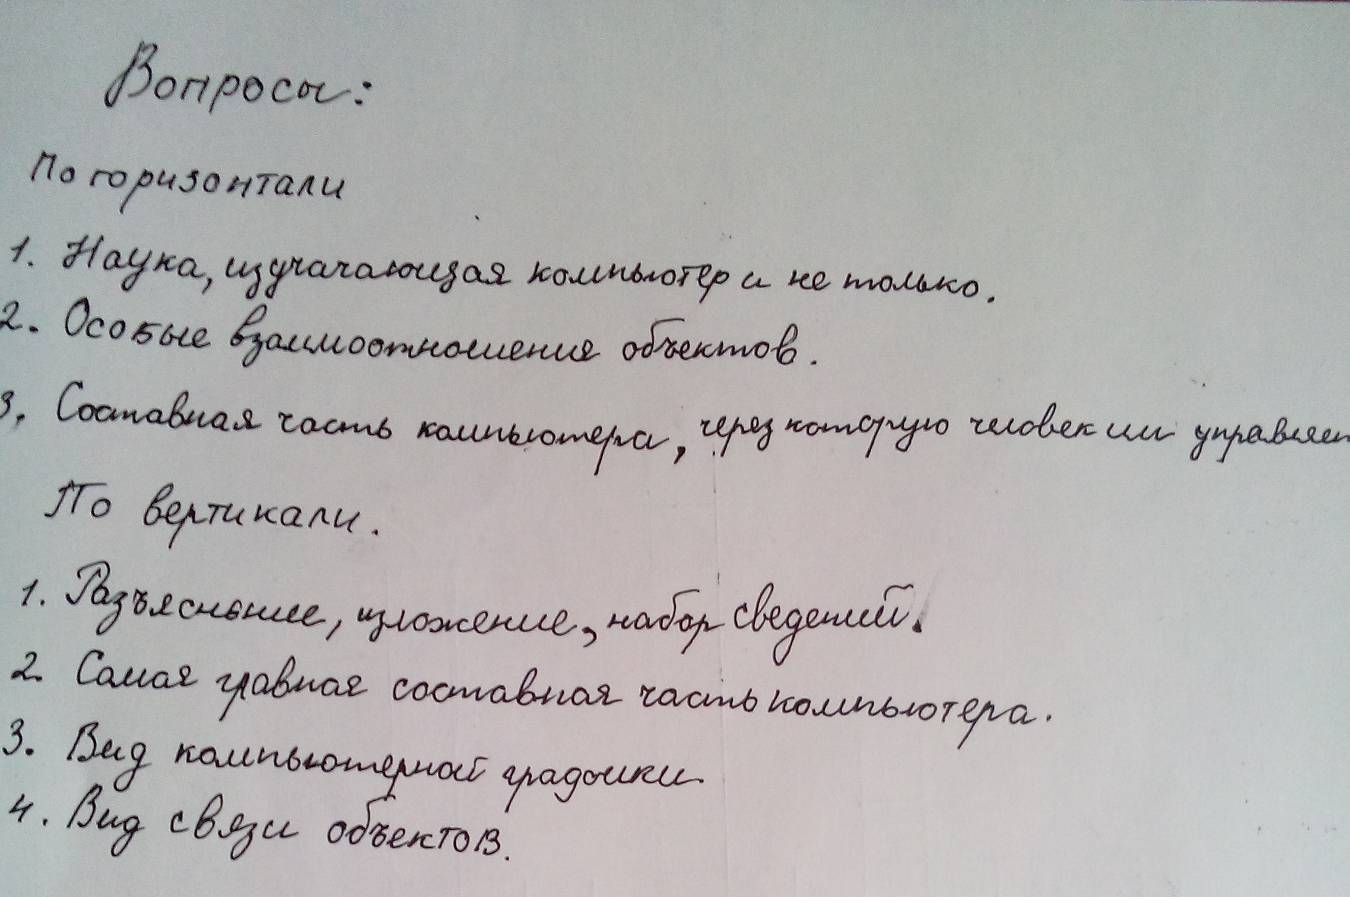 Вопросы:
По горизонтали
1. Наука, изучачающая компьютер и не только.
2. Особые взаимоотношения объектов.
3. Составная часть компьютера, через которую человек им управляет
По вертикали.
1. Разъяснение, изложение, набор сведений.
2. Самая главная составная часть компьютера.
3. Вид компьютерной графики
4. Вид связи объектов.